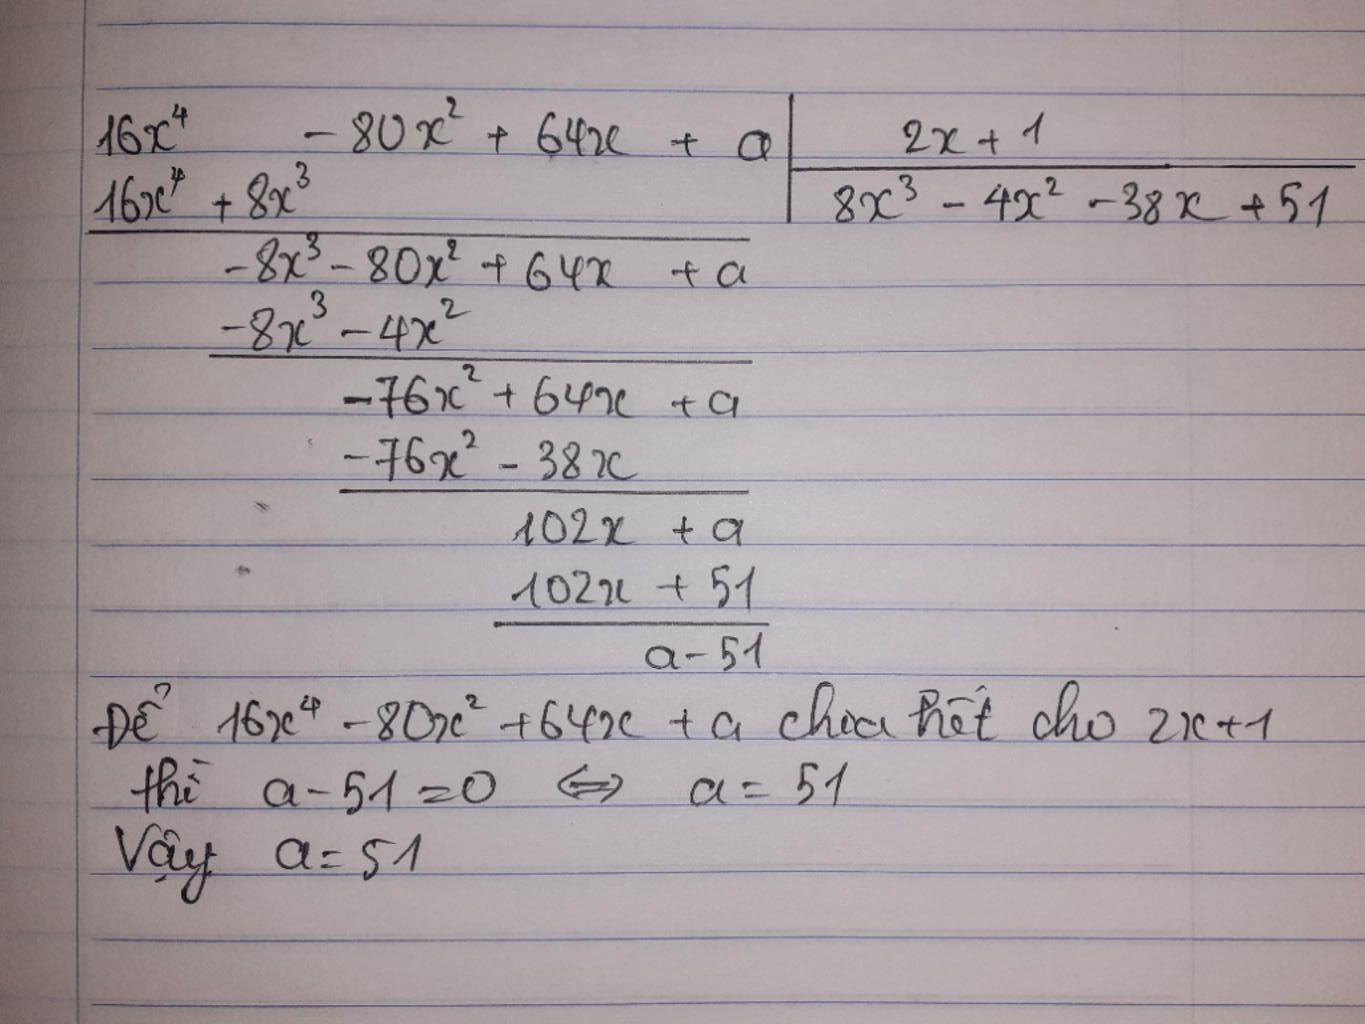 16x⁴ - 80x² + 64x + a | 2x + 1
16x⁴ + 8x³ | 8x³ - 4x² - 38x + 51
-8x³ - 80x² + 64x + a
-8x³ - 4x²
-76x² + 64x + a
-76x² - 38x
102x + a
102x + 51
a - 51
Để 16x⁴ - 80x² + 64x + a chia hết cho 2x+1
thì a - 51 = 0 ⇔ a = 51
Vậy a = 51